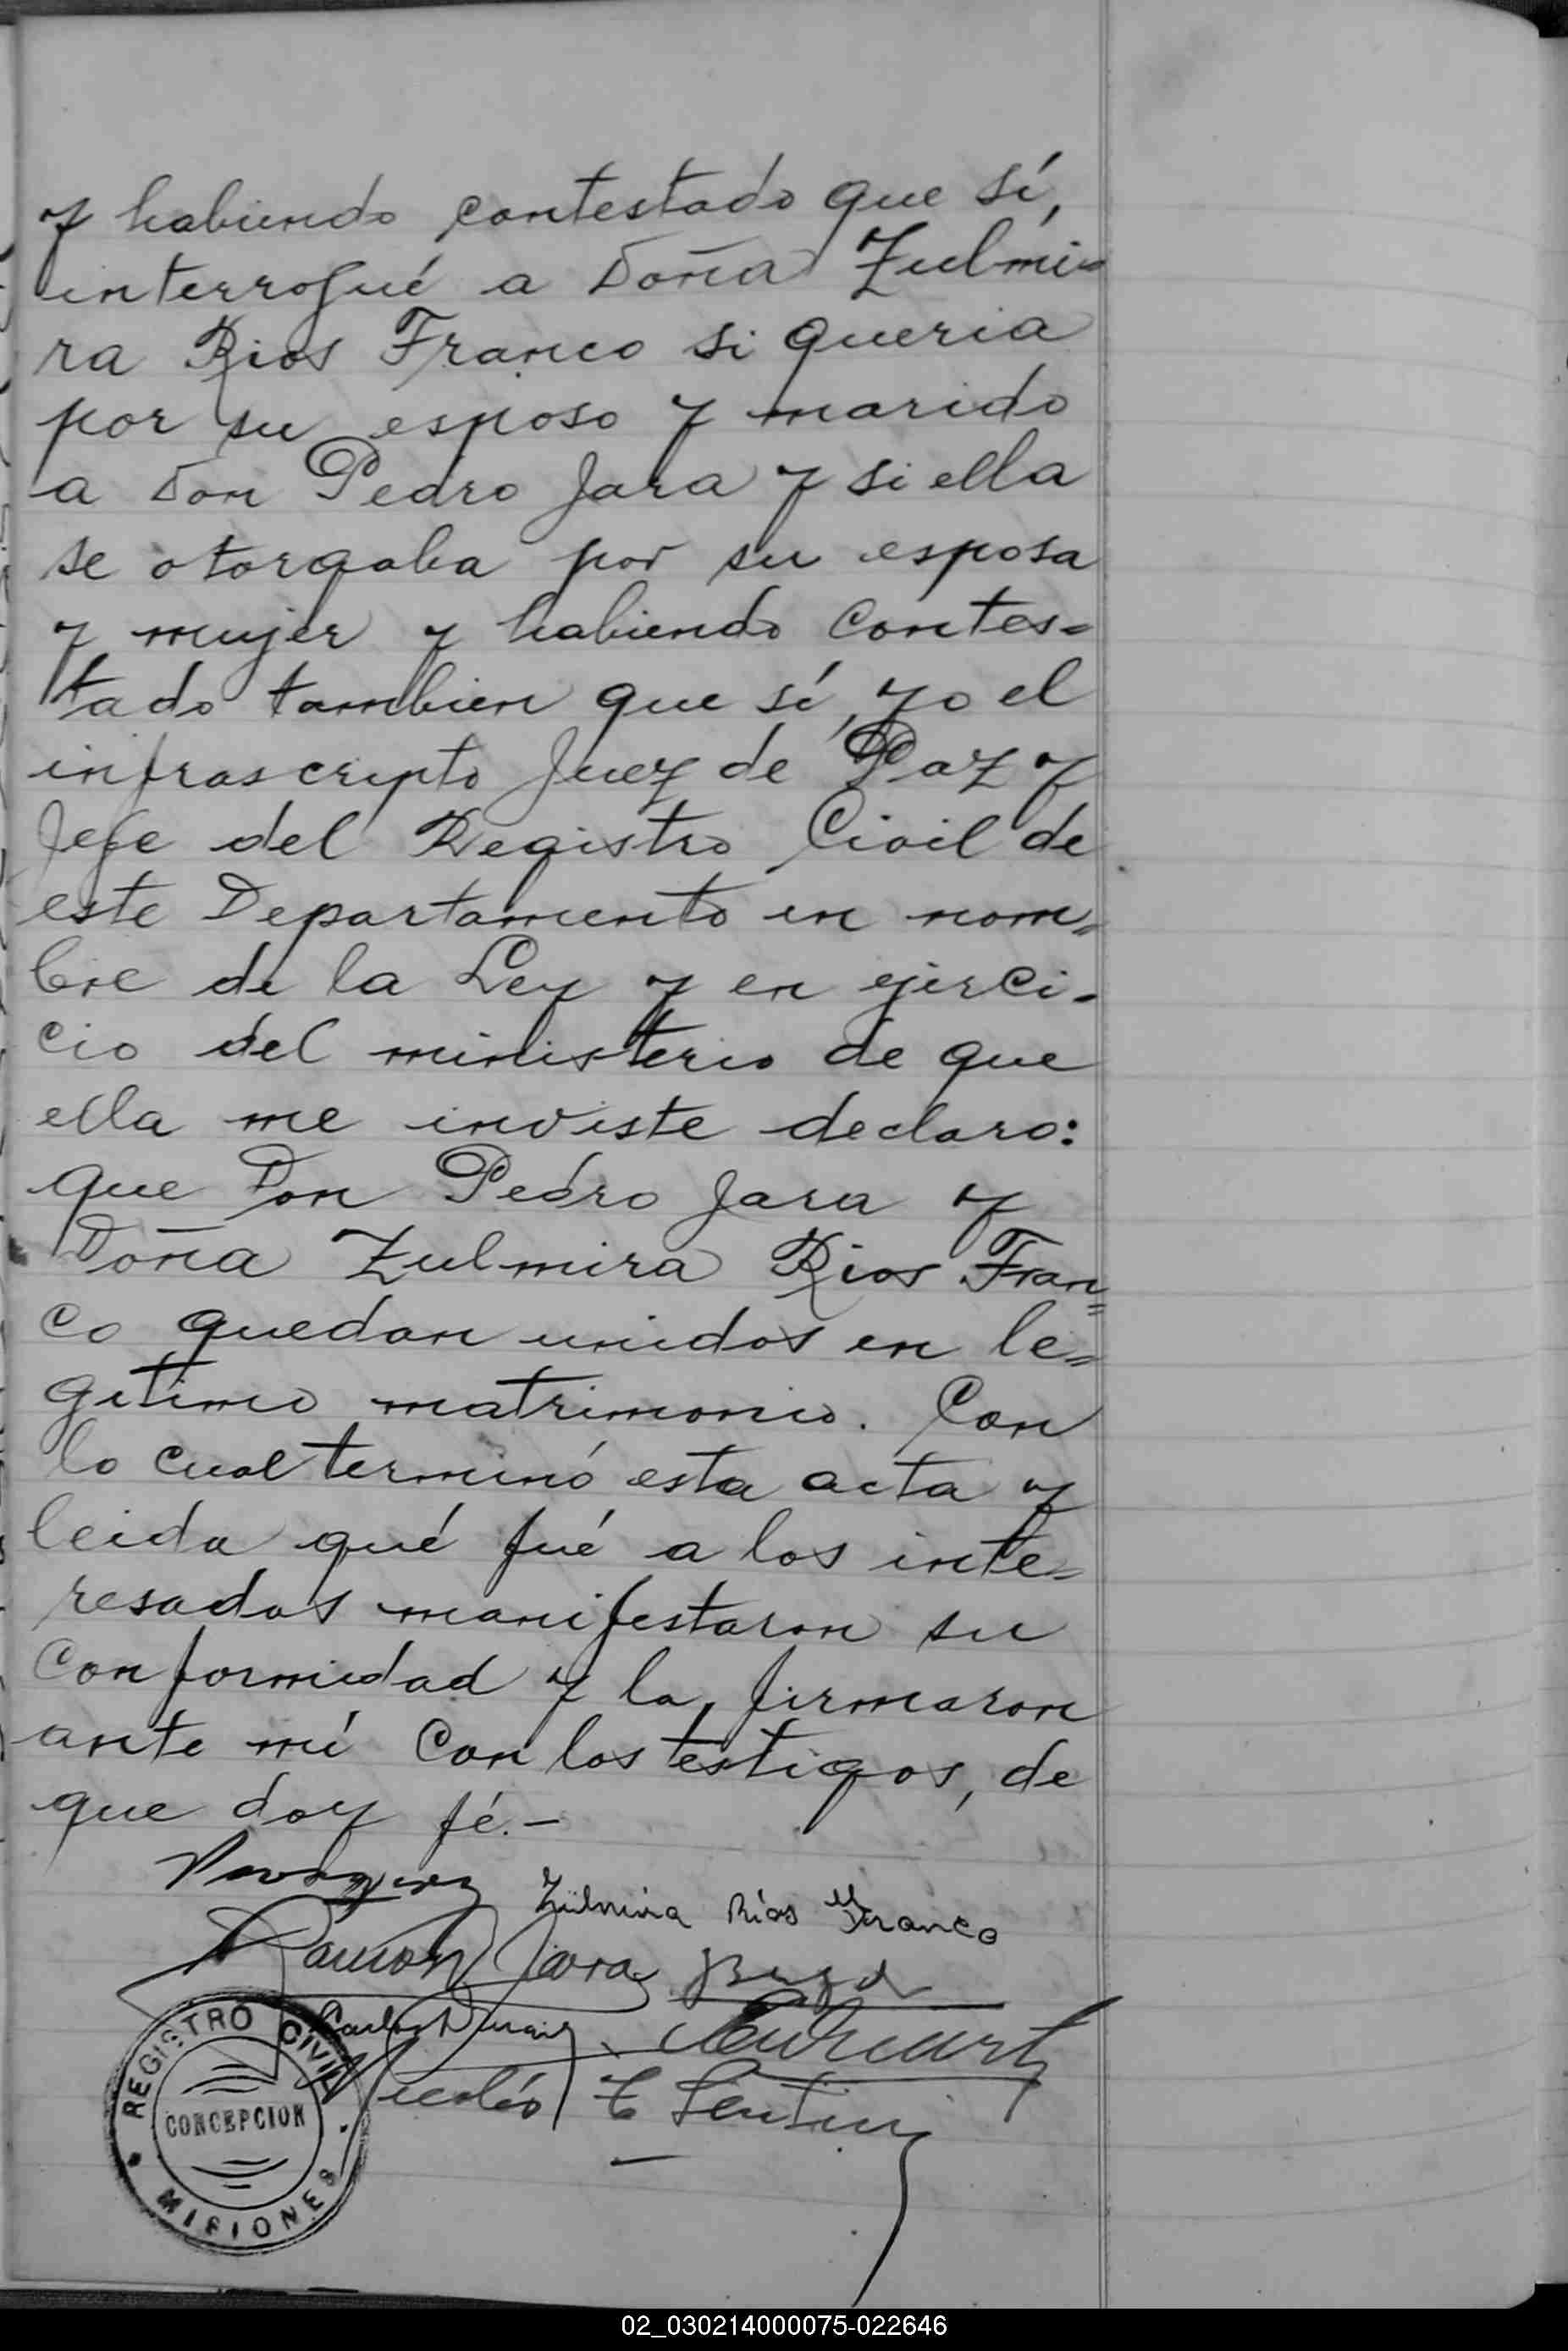 y habiendo contestado que sí,
interrogué a Doña Zulmi-
ra Rios Franco si queria
por su esposo y marido
a Don Pedro Jara y si ella
se otorgaba por su esposa
y mujer y habiendo contes-
tado tambien que sí, yo el
infrascripto Juez de Paz y
Jefe del Registro Civil de
este Departamento en nom-
bre de la Ley y en ejerci-
cio del ministerio de que
ella me inviste declaro:
que Don Pedro Jara y
Doña Zulmira Rios Fran=
co quedan unidos en le-
gitimo matrimonio. Con
lo cual terminó esta acta y
leida qué fué a los inte-
resados manifestaron su
conformidad y la firmaron
ante mí con los testigos, de
que doy fé.-
Zulmira Ríos Franco
Ramon Jara
Carlos
Nicolás
REGISTRO CIVIL
CONCEPCION
MISIONES
02_030214000075-022646